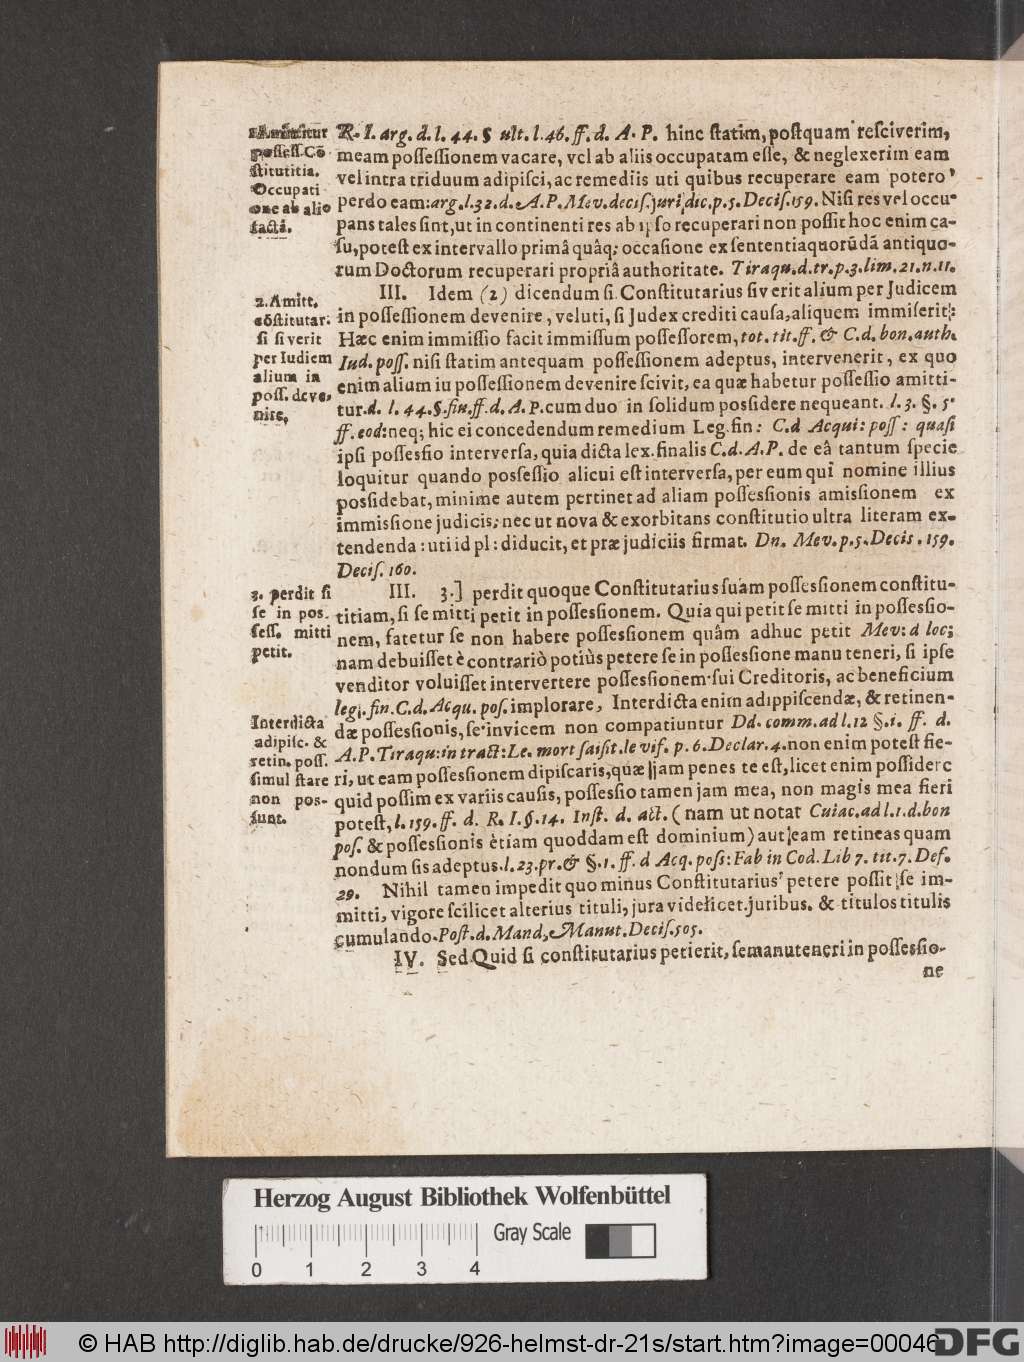 1. Amittitur
possess. Cō
stitutitia.
Occupati
one ab alio
facta.
R. I. arg. d. l. 44. § ult. l. 46. ff. d. A. P. hinc statim, postquam resciverim,
meam possessionem vacare, vel ab aliis occupatam esse, & neglexerim eam
vel intra triduum adipisci, ac remediis uti quibus recuperare eam potero,
perdo eam: arg. l. 32. d. A. P. Mev. decis. jurisdic. p. 5. Decis. 159. Nisi res vel occu-
pans tales sint, ut in continenti res ab ipso recuperari non possit hoc enim ca-
su, potest ex intervallo primâ quâq; occasione ex sententia quorūdā antiquo-
rum Doctorum recuperari propriâ authoritate. Tiraqu. d. tr. p. 3. lim. 21. n. 11.
2. Amitt.
cōstitutar.
si siverit
per Iudiem
alium in
poss. deve-
nire.
III. Idem (2) dicendum si Constitutarius siverit alium per Judicem
in possessionem devenire, veluti, si Judex crediti causa, aliquem immiserit:
Hæc enim immissio facit immissum possessorem, tot. tit. ff. & C. d. bon. auth.
Iud. poss. nisi statim antequam possessionem adeptus, intervenerit, ex quo
enim alium iu possessionem devenire scivit, ea quæ habetur possessio amitti-
tur. d. l. 44. §. fin. ff. d. A. P. cum duo in solidum possidere nequeant. l. 3. §. 5.
ff. eod: neq; hic ei concedendum remedium Leg. fin: C. d Acqui: poss: quasi
ipsi possessio interversa, quia dicta lex. finalis C. d. A. P. de eâ tantum specie
loquitur quando possessio alicui est interversa, per eum qui nomine illius
possidebat, minime autem pertinet ad aliam possessionis amissionem ex
immissione judicis; nec ut nova & exorbitans constitutio ultra literam ex-
tendenda: uti id pl: diducit, et præjudiciis firmat. Dn. Mev. p. 5. Decis. 159.
Decis. 160.
3. perdit si
se in pos-
sess. mitti
petit.
III. 3.] perdit quoque Constitutarius suam possessionem constitu-
titiam, si se mitti petit in possessionem. Quia qui petit se mitti in possessio-
nem, fatetur se non habere possessionem quâm adhuc petit Mev: d loc;
nam debuisset è contrariò potiùs petere se in possessione manu teneri, si ipse
venditor voluisset intervertere possessionem sui Creditoris, ac beneficium
legi. fin. C. d. Acqu. pos. implorare, Interdicta enim adippiscendæ, & retinen-
Interdicta
adipisc. &
retin. poss.
simul stare
non pos-
sunt.
dæ possessionis, se invicem non compatiuntur Dd. comm. ad l. 12 §. 1. ff. d.
A. P. Tiraqu: in tract: Le. mort saisit. le vif. p. 6. Declar. 4. non enim potest fie-
ri, ut eam possessionem dipiscaris, quæ jam penes te est, licet enim possidere
quid possim ex variis causis, possessio tamen jam mea, non magis mea fieri
potest, l. 159. ff. d. R. I. §. 14. Inst. d. act. ( nam ut notat Cuiac. ad l. 1. d. bon
pos. & possessionis ètiam quoddam est dominium) aut eam retineas quam
nondum sis adeptus. l. 23. pr. & §. 1. ff. d Acq. poss: Fab in Cod. Lib 7. tit. 7. Def.
29. Nihil tamen impedit quo minus Constitutarius petere possit se im-
mitti, vigore scilicet alterius tituli, jura videlicet juribus. & titulos titulis
cumulando. Post. d. Mand, Manut. Decis. 505.
IV. Sed Quid si constitutarius petierit, se manuteneri in possessio-
ne
Herzog August Bibliothek Wolfenbüttel
Gray Scale
0 1 2 3 4
© HAB http://diglib.hab.de/drucke/926-helmst-dr-21s/start.htm?image=00046
DFG